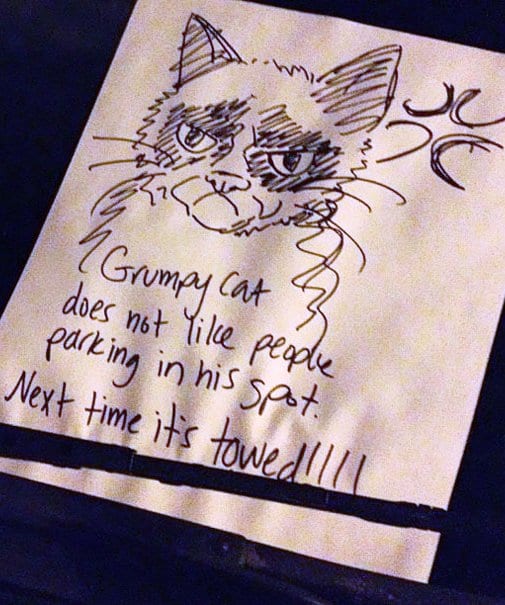 Grumpy Cat
does not like people
parking in his spot.
Next time it's towed!!!!